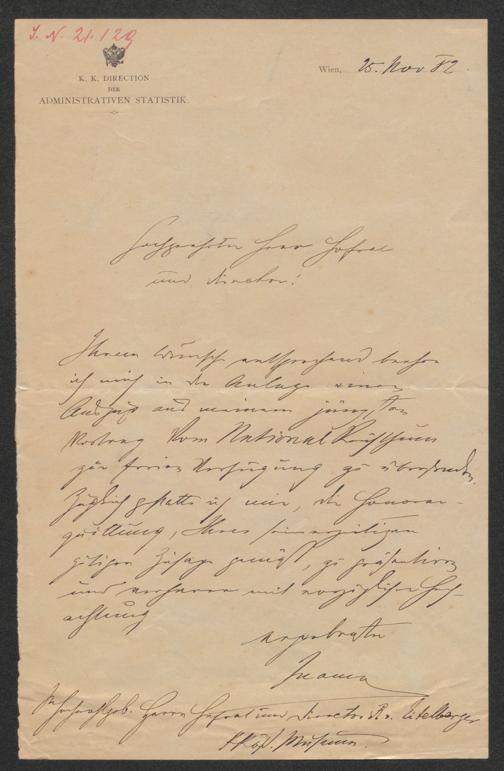 I. N. 21.129
K. K. DIRECTION
DER
ADMINISTRATIVEN STATISTIK.
Wien, 25. Nov 82.
Hochgeehrter Herr Hofrat
und Director!
Ihrem Wunsch entsprechend beehre
ich mich in der Anlage einen
Auszug aus meinem jüngsten
Vortrag vom National Reichthum
zur freien Verfügung zu übersenden.
Zugleich gestatte ich mir, die Honorar-
quittung, Ihrer seinerzeitigen
gütigen Zusage gemäß, zu präsentiren
und verharre mit vorzüglicher Hoch-
achtung
ergebenster
Inama
Sr Hochwohlgeb. Herrn Hofrat und Director R. v. Eitelberger
Museum